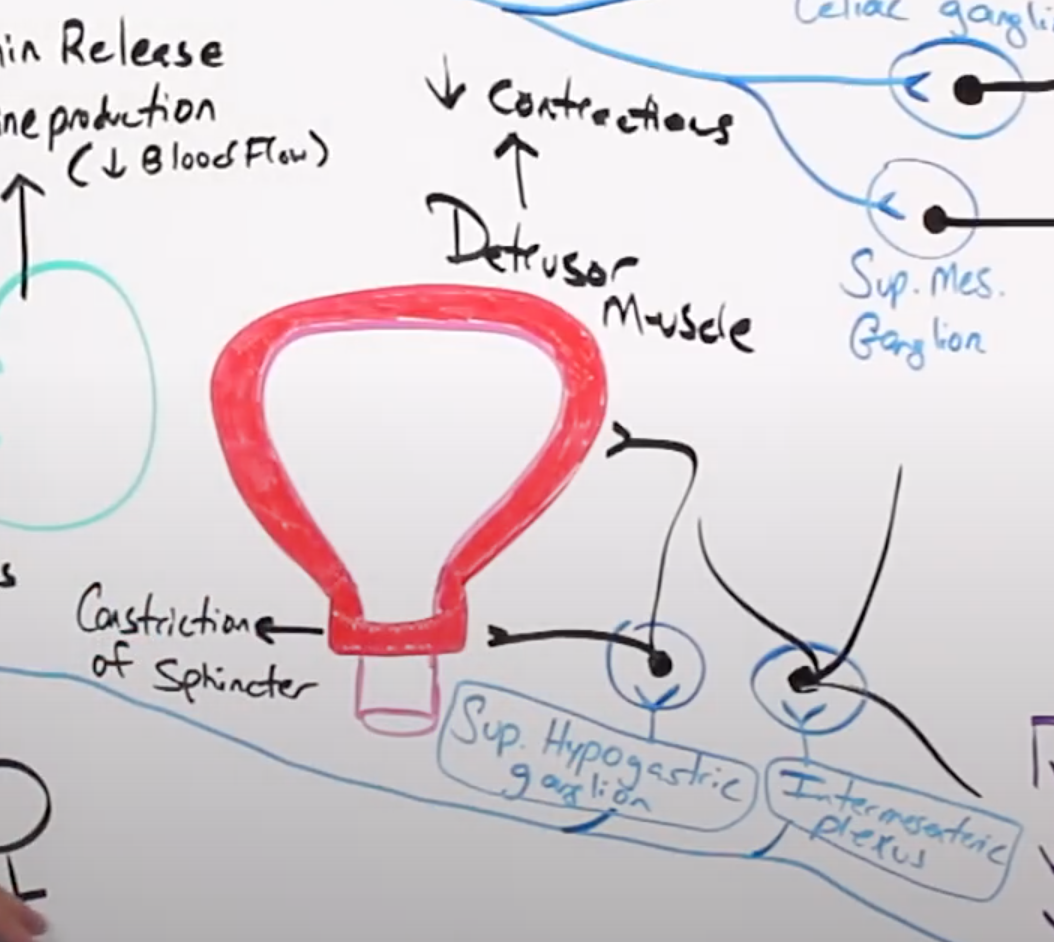 in Release
ine production
(↓ Blood Flow)
↓ Contractions
Detrusor
Muscle
Celiac gangli
Sup. Mes.
Ganglion
s
Constriction
of Sphincter
Sup. Hypogastric
ganglion
Intermesenteric
plexus